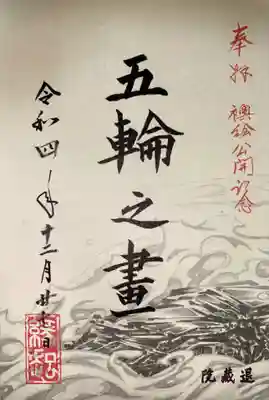 奉拝 襖絵公開記念
五輪之畫
令和四年十二月廿
日
退蔵院